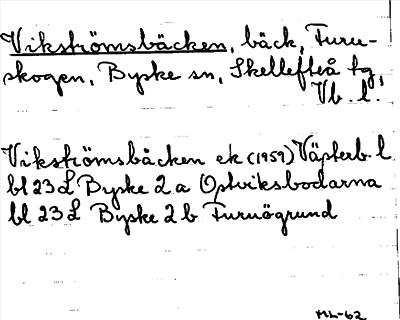 Vikströmsbäcken, bäck, Furu-
skogen, Byske sn, Skellefteå tg,
Vb. l.
Vikströmsbäcken ek (1959) Västerb. l
bl 23 L Byske 2 a Ostviksbodarna
bl 23 L Byske 2 b Furuögrund
ML-62